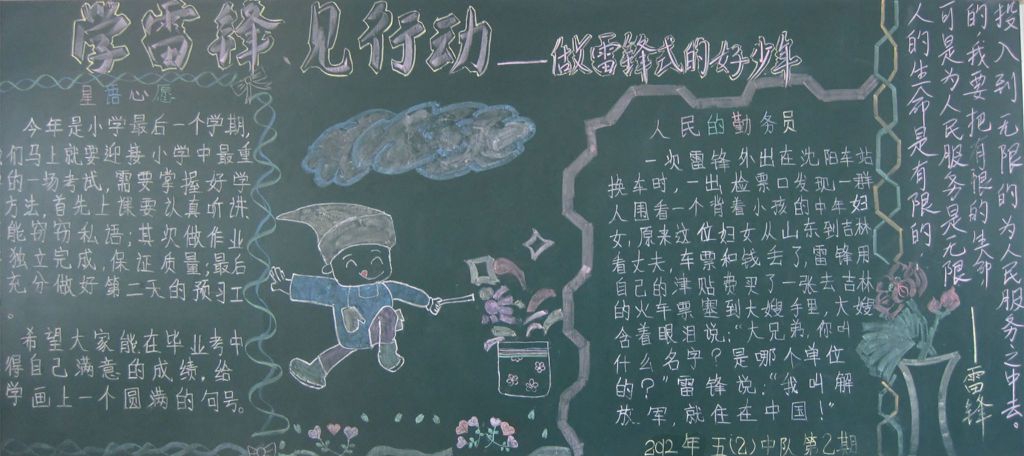 学雷锋、见行动
——做雷锋式的好少年
星语心愿
今年是小学最后一个学期,
们马上就要迎接小学中最重
的一场考试,需要掌握好学
方法,首先上课要认真听讲
能窃窃私语;其次做作业
独立完成,保证质量;最后
充分做好第二天的预习工
。
希望大家能在毕业考中
得自己满意的成绩,给
学画上一个圆满的句号。
人民的勤务员
一次雷锋外出在沈阳车站
换车时,一出检票口发现一群
人围看一个背着小孩的中年妇
女,原来这位妇女从山东到吉林
看丈夫,车票和钱丢了,雷锋用
自己的津贴费买了一张去吉林
的火车票塞到大嫂手里,大嫂
含着眼泪说:“大兄弟,你叫
什么名字?是哪个单位
的?”雷锋说:“我叫解
放军,就住在中国!”
2012年五(2)中队第2期
人的生命是有限的
可是为人民服务是无限
的,我要把有限的生命
投入到无限的为人民服务之中去。
——雷锋